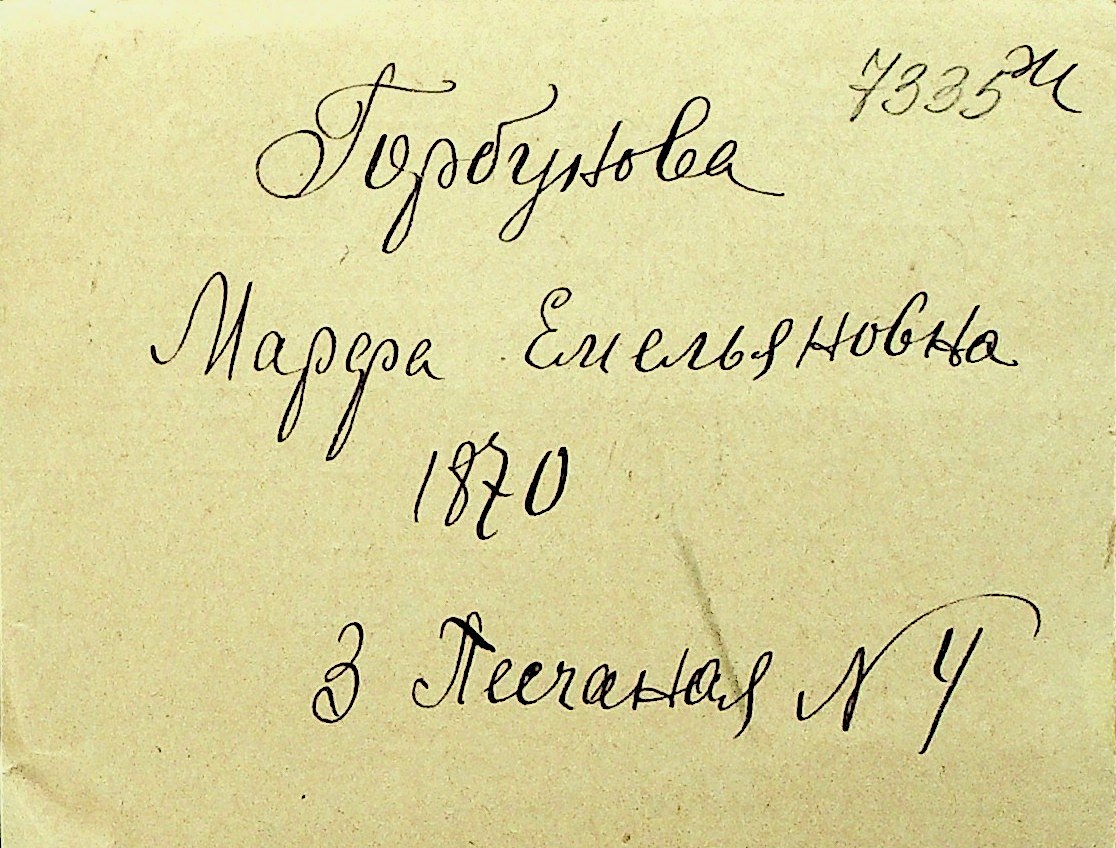 7335ж
Горбунова
Марфа Емельяновна
1870
3 Песчаная N 4